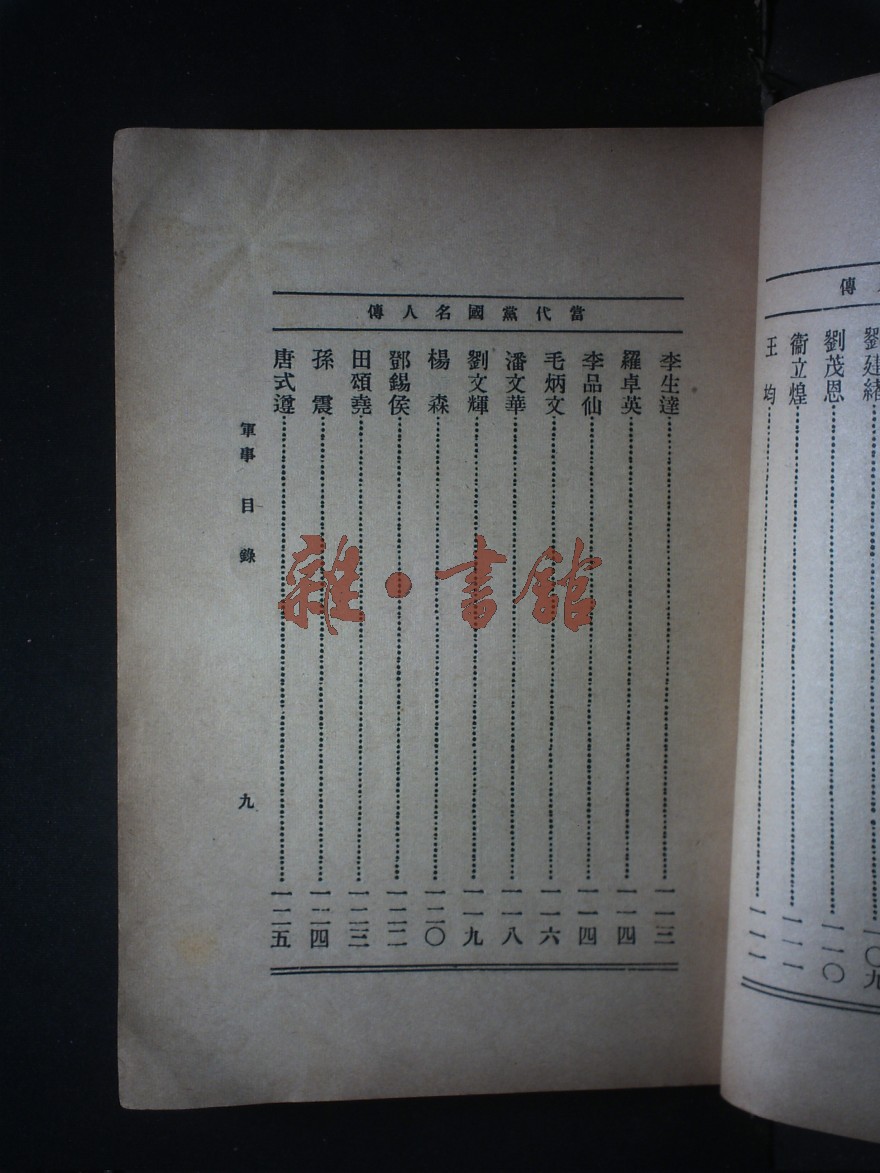 當代黨國名人傳
李生達 一一三
羅卓英 一一四
李品仙 一一四
毛炳文 一一六
潘文華 一一八
劉文輝 一一九
楊森 一二〇
鄧錫侯 一二二
田頌堯 一二三
孫震 一二四
唐式遵 一二五
軍事 目錄 九
雜·書館
人傳
劉建緒 一〇九
劉茂恩 一一〇
衞立煌 一一一
王均 一一一